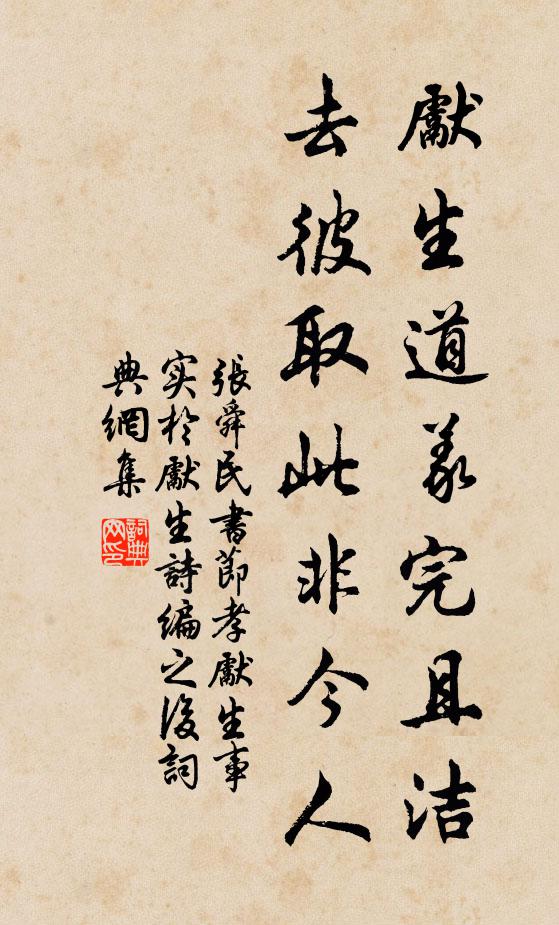 獻生道義完且洁
去彼取此非今人
張舜民書節孝獻生事
实於獻生詩编之後詞
典網集
詞典
网印